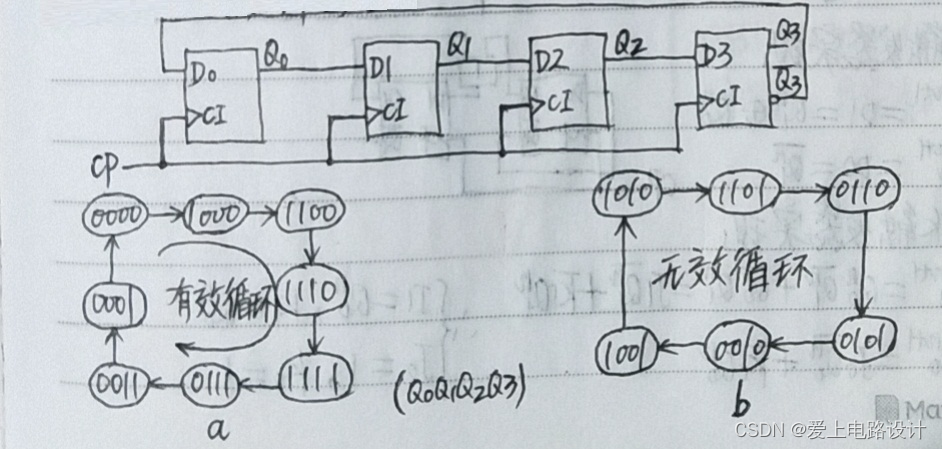 Q0 Q1 Q2 Q3
D0 D1 D2 D3 Q̅3
CI CI CI CI
CP
0000 1000 1100 1010 1101 0110
0001 有效循环 1110 无效循环
0011 0111 1111 (Q0Q1Q2Q3) 1001 0010 0101
a b
CSDN @爱上电路设计